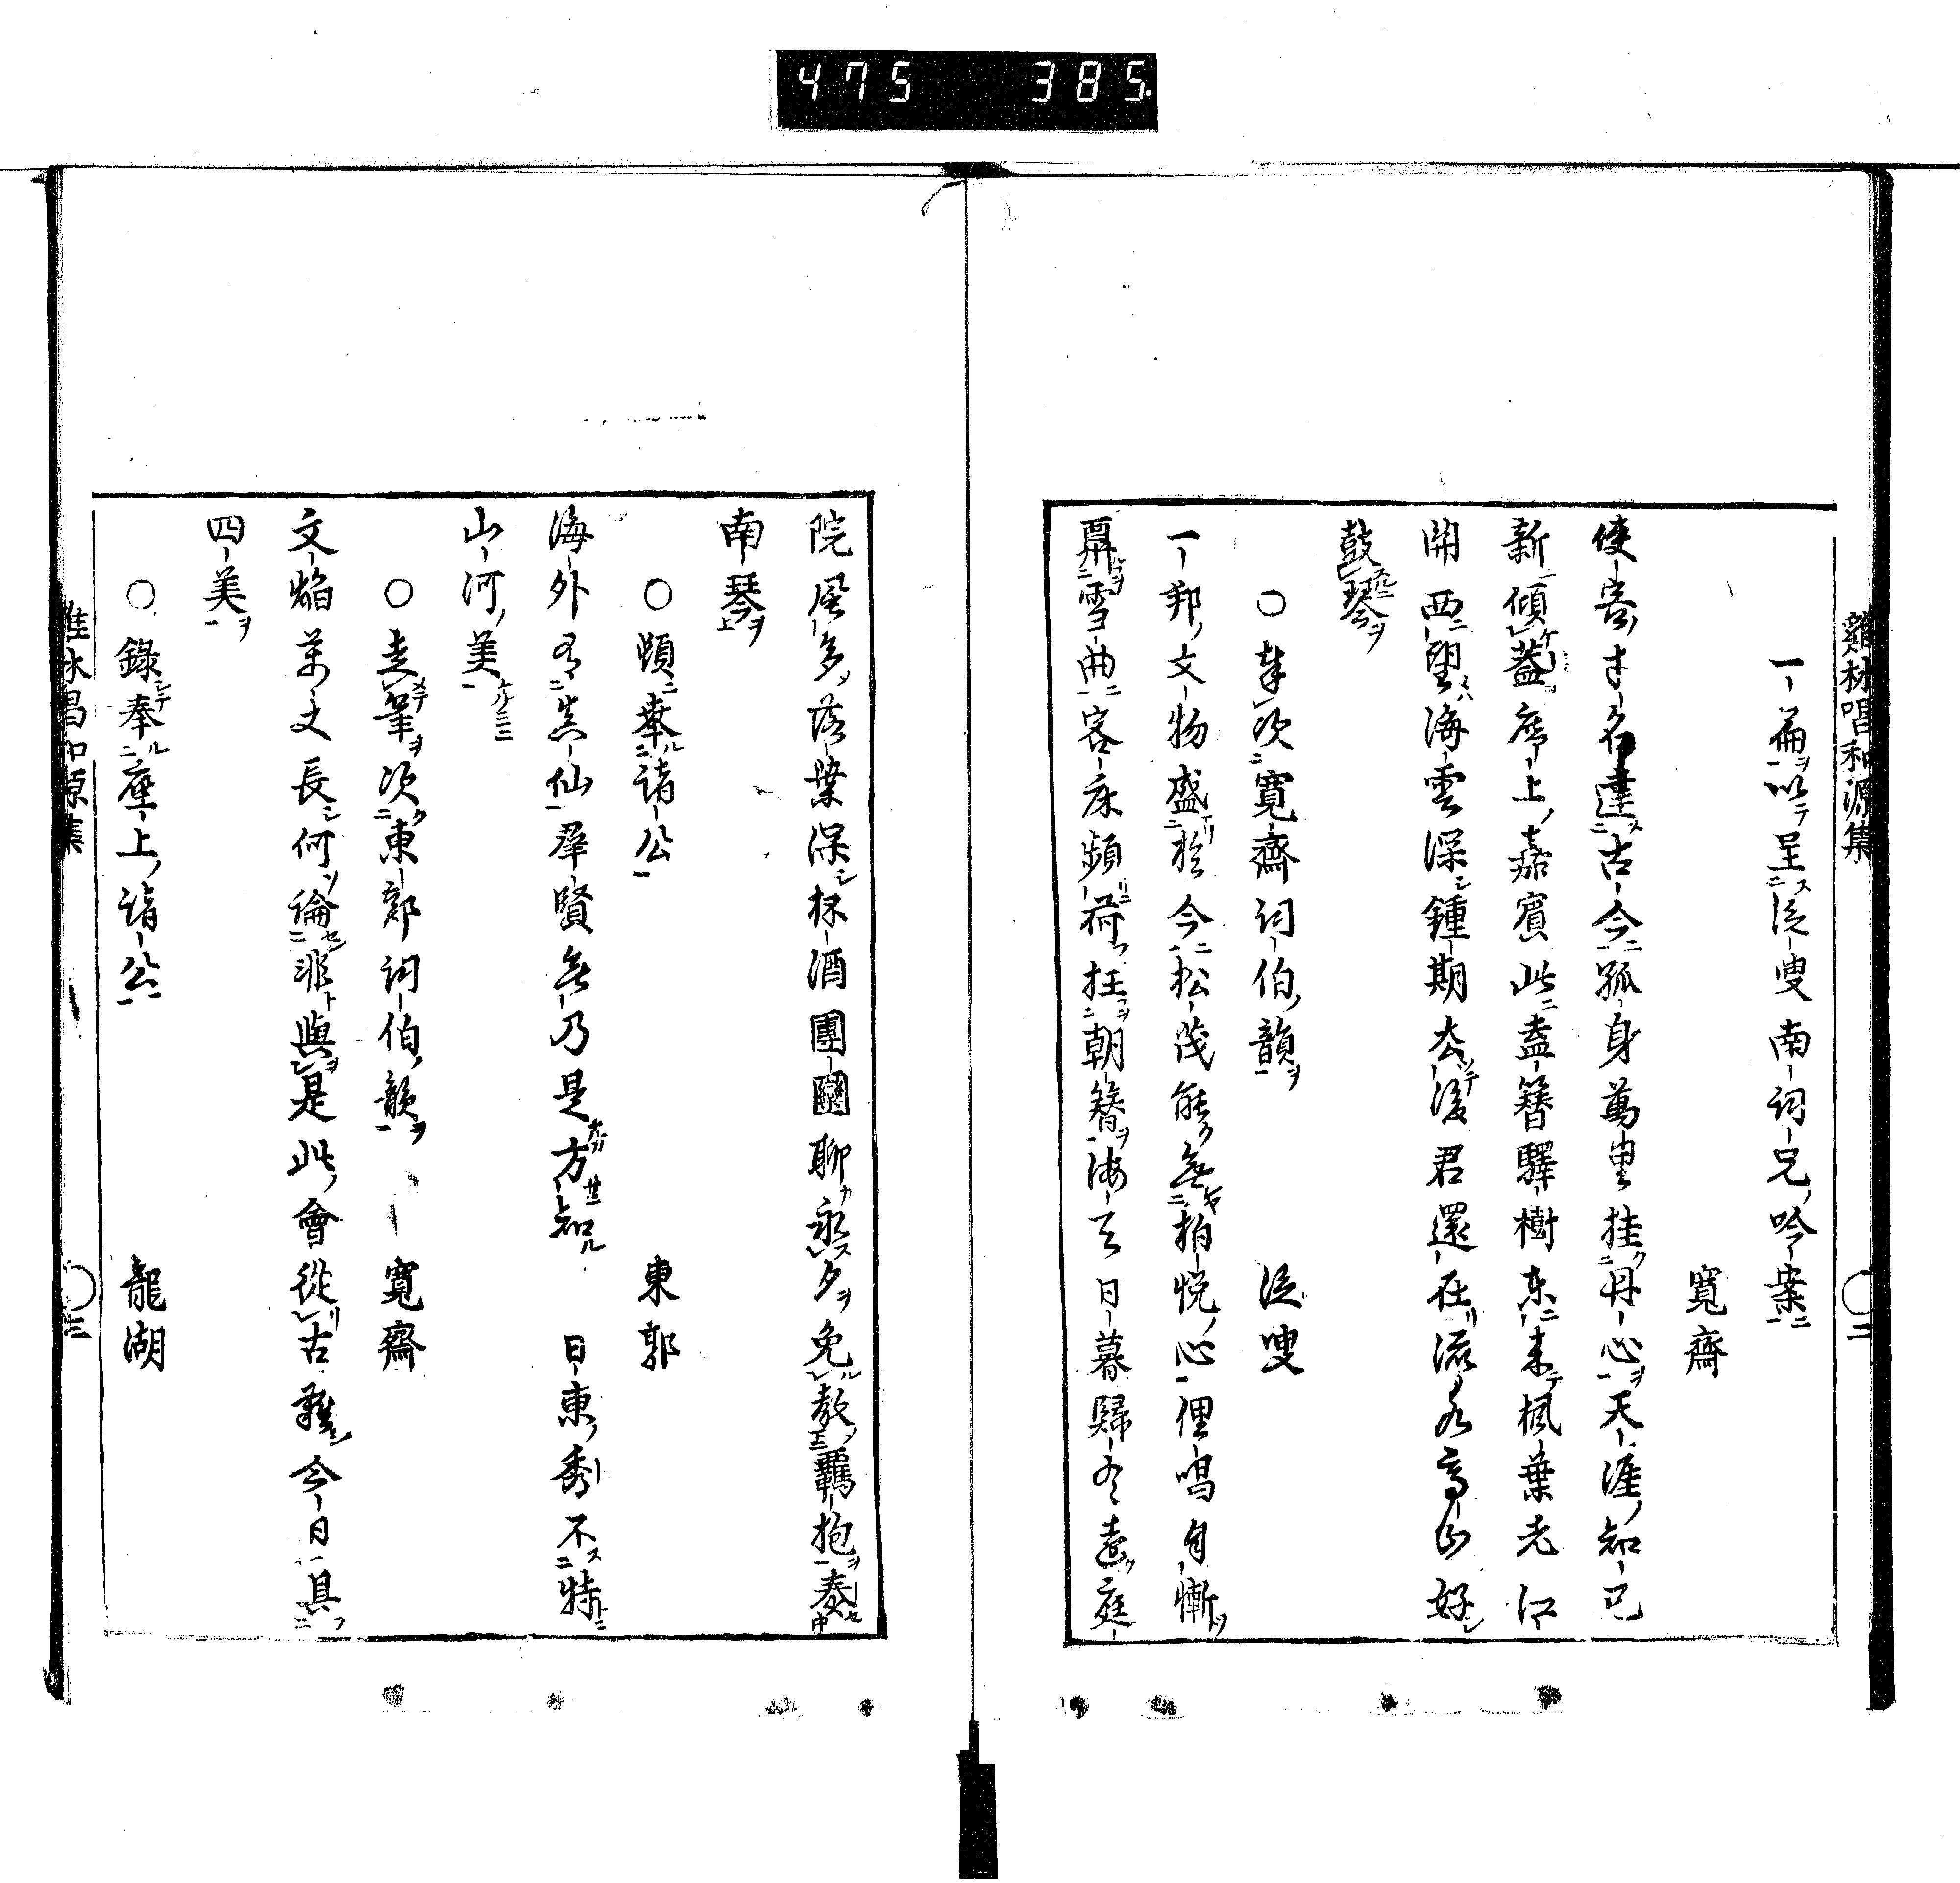 475 385.
雞林唱和源集
二
一篇以呈泛叟南詞兄吟案
寬齋
使客才名達古今孤身萬里挂丹心天涯知己
新傾蓋席上嘉賓此盍簪驛樹東來楓葉老江
關西望海雲深鍾期去後君還在流水高山好
鼓琴
○奉次寬齋詞伯韻
泛叟
一邦文物盛於今松茂能無柏悅心俚唱自慚
羃雪曲客床頻荷抂朝簪海天日暮歸冬遠庭
院風多落葉深杯酒團圞聊永夕免教羈抱奏
南琴
○頓奉諸公
東郭
海外有真仙群賢無乃是方知
日東秀不特
山河美
○走筆次東郭詞伯韻
寬齋
文焰萬丈長何論非與是此會從古難今日具
四美
○錄奉座上諸公
龍湖
三